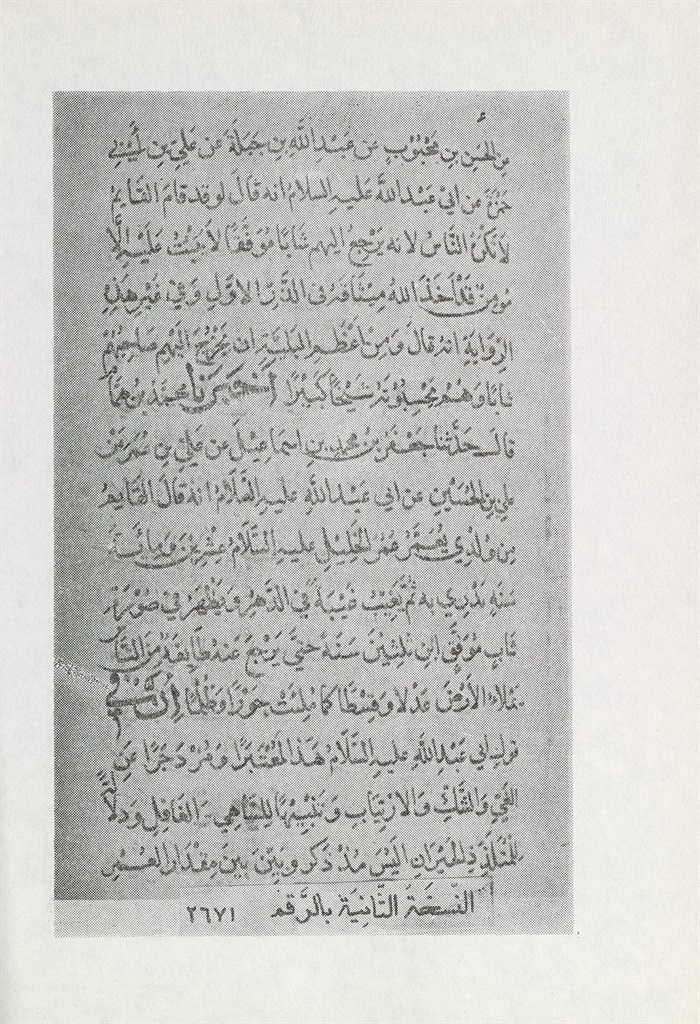 عن الحسن بن محبوب عن عبد الله بن جبلة عن علي بن أبي
حمزة عن ابي عبد الله عليه السلام انه قال لو قد قام القايم
لانكره الناس لانه يرجع اليهم شابا موفقا لا يثبت عليه الا
مومن قد اخذ الله ميثاقه في الذر الاول وفي غير هذه
الرواية انه قال ومن اعظم البلية ان يخرج اليهم صاحبهم
شابا وهم يحسبونه شيخا كبيرا اخبرنا محمد بن همام
قال حدثنا جعفر بن محمد بن اسماعيل عن علي بن عمر بن
علي بن الحسين عن ابي عبد الله عليه السلام انه قال القايم
من ولدي يعمر عمر الخليل عليه السلام عشرين وماية
سنة يدري به ثم يغيب غيبة في الدهر ويظهر في صورة
شاب موفق ابن ثلثين سنة حتى يرجع عنه طايفة من الناس
يملاء الارض عدلا وقسطا كما ملئت جورا وظلما ان في
قول ابي عبد الله عليه السلام هذا لمعتبرا ومزدجرا عن
العمى والشك والارتياب وتنبيها للساهي الغافل ودلالة
للمتلدد الحيران اليس مذ ذكر وبين بين مقدار العمر
النسخة الثانية بالرقم ٢٦٧١